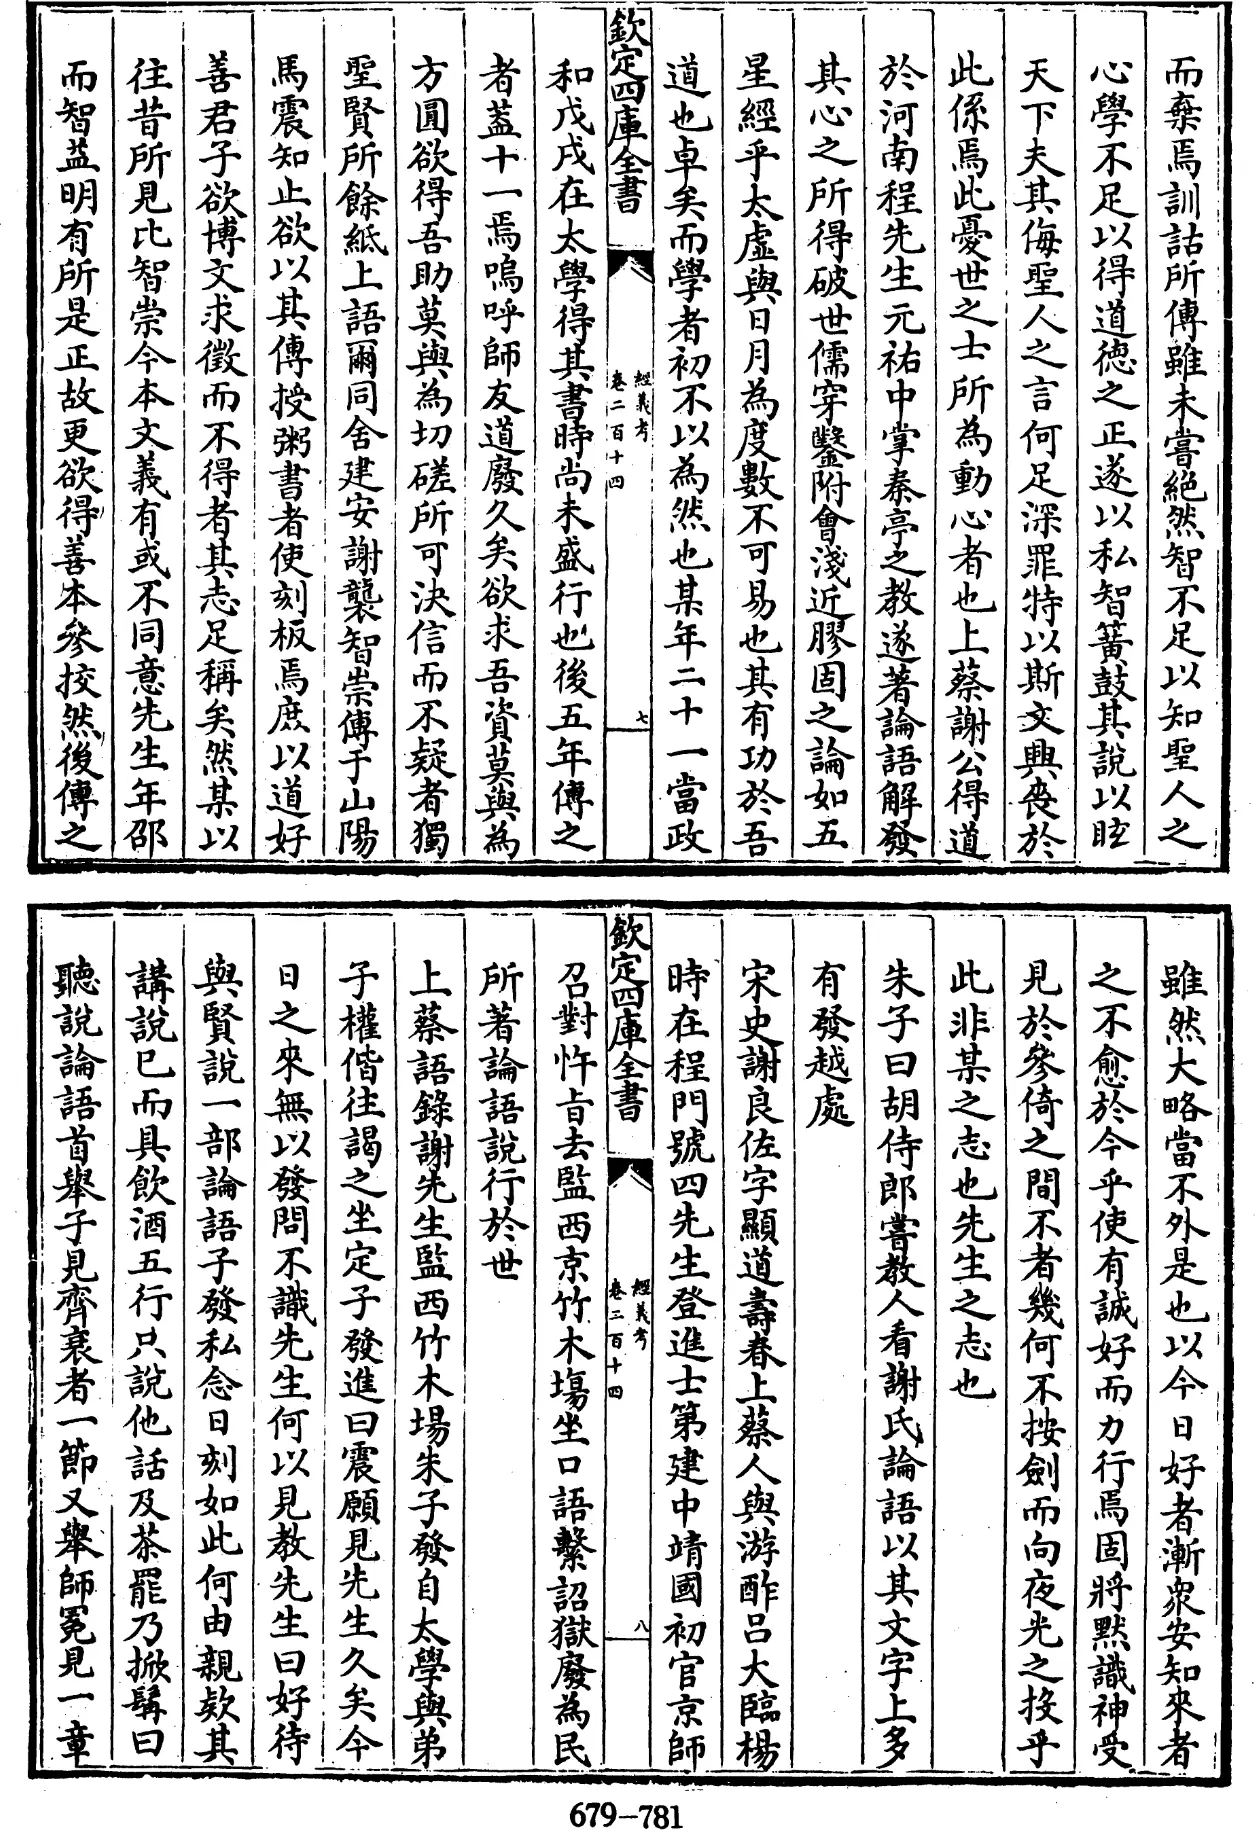 而棄焉訓詁所傳雖未嘗絕然智不足以知聖人之
心學不足以得道德之正遂以私智簧鼓其說以眩
天下夫其侮聖人之言何足深罪特以斯文興喪於
此係焉此憂世之士所為動心者也上蔡謝公得道
於河南程先生元祐中掌秦亭之教遂著論語解發
其心之所得破世儒穿鑿附會淺近膠固之論如五
星經乎太虛與日月為度數不可易也其有功於吾
道也卓矣而學者初不以為然也某年二十一當政
欽定四庫全書
經義考
卷二百十四
七
和戊戌在太學得其書時尚未盛行也後五年傳之
者蓋十一焉嗚呼師友道廢久矣欲求吾資莫與為
方圓欲得吾助莫與為切磋所可決信而不疑者獨
聖賢所餘紙上語爾同舍建安謝襲智崇傳于山陽
馬震知止欲以其傳授粥書者使刻板焉庶以道好
善君子欲博文求徵而不得者其志足稱矣然某以
往昔所見比智崇今本文義有或不同意先生年邵
而智益明有所是正故更欲得善本參挍然後傳之
雖然大略當不外是也以今日好者漸衆安知來者
之不愈於今乎使有誠好而力行焉固將默識神受
見於參倚之間不者幾何不按劍而向夜光之投乎
此非某之志也先生之志也
朱子曰胡侍郎嘗教人看謝氏論語以其文字上多
有發越處
宋史謝良佐字顯道壽春上蔡人與游酢呂大臨楊
時在程門號四先生登進士第建中靖國初官京師
欽定四庫全書
經義考
卷二百十四
八
召對忤旨去監西京竹木場坐口語繫詔獄廢為民
所著論語說行於世
上蔡語錄謝先生監西竹木場朱子發自太學與弟
子權偕往謁之坐定子發進曰震願見先生久矣今
日之來無以發問不識先生何以見教先生曰好待
與賢說一部論語子發私念日刻如此何由親欵其
講說已而具飲酒五行只說他話及茶罷乃掀髯曰
聽說論語首舉子見齊衰者一節又舉師冕見一章
679-781